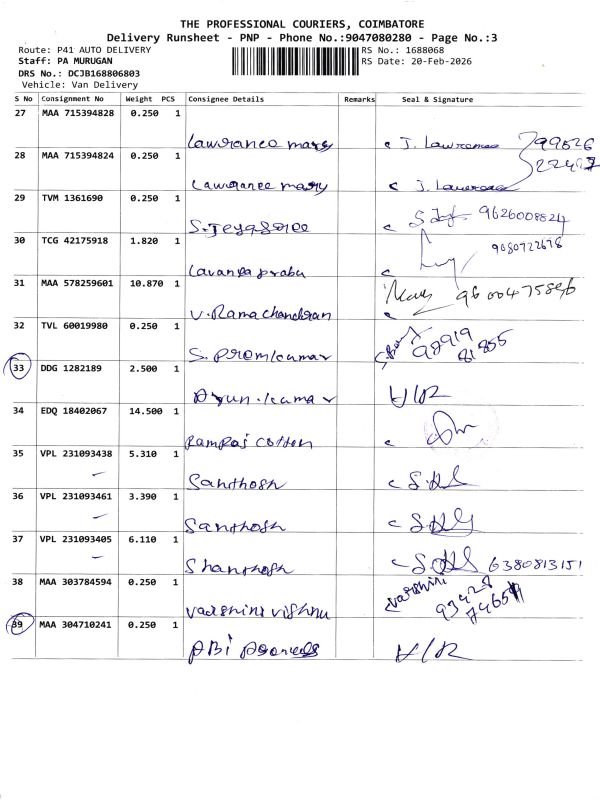 THE PROFESSIONAL COURIERS, COIMBATORE
Delivery Runsheet - PNP - Phone No.:9047080280 - Page No.:3
Route: P41 AUTO DELIVERY RS No.: 1688068
Staff: PA MURUGAN RS Date: 20-Feb-2026
DRS No.: DCJB168806803
Vehicle: Van Delivery
S No Consignment No Weight PCS Consignee Details Remarks Seal & Signature
27 MAA 715394828 0.250 1
Lawrance mary J. Lawrence 99526
28 MAA 715394824 0.250 1
Lawrance mary J. Lawrence
29 TVM 1361690 0.250 1
S. Jeyasree 9626008824
30 TCG 42175918 1.820 1
Lavanya prabu 9080722678
31 MAA 578259601 10.870 1
V. Ramachandran 9600475896
32 TVL 60019980 0.250 1
S. Premkumar 98919
81855
33 DDG 1282189 2.500 1
Arun.kumar
34 EDQ 18402067 14.500 1
Ramraj cotton
35 VPL 231093438 5.310 1
Santhosh
36 VPL 231093461 3.390 1
Santhosh
37 VPL 231093405 6.110 1
Shanthosh 6380813151
38 MAA 303784594 0.250 1
varshini vishnu varshini 93428
39 MAA 304710241 0.250 1
ABi